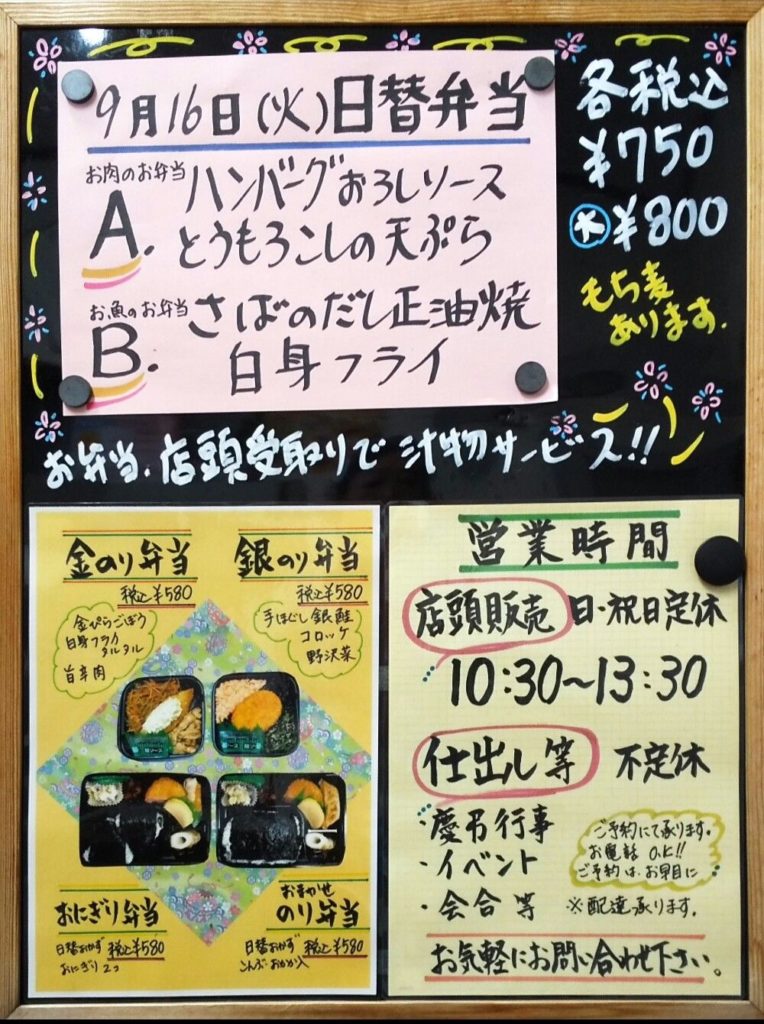 9月16日(火)日替弁当
お肉のお弁当
A. ハンバーグおろしソース
とうもろこしの天ぷら
お魚のお弁当
B. さばのだし正油焼
白身フライ
各税込
¥750
大 ¥800
もち麦
あります.
お弁当、店頭受取りで 汁物サービス!!
金のり弁当
税込¥580
金ぴらごぼう
白身フライ
タルタル
旨辛肉
銀のり弁当
税込¥580
手ほぐし銀鮭
コロッケ
野沢菜
おにぎり弁当
日替おかず 税込¥580
おにぎり2つ
おまかせ
のり弁当
日替おかず 税込¥580
こんぶ・おかか入
営業時間
店頭販売 日・祝日定休
10:30~13:30
仕出し等 不定休
・慶弔行事
・イベント
・会合等
ご予約にて承ります。
お電話 O.K!!
ご予約は、お早目に
※配達承ります。
お気軽にお問い合わせ下さい。